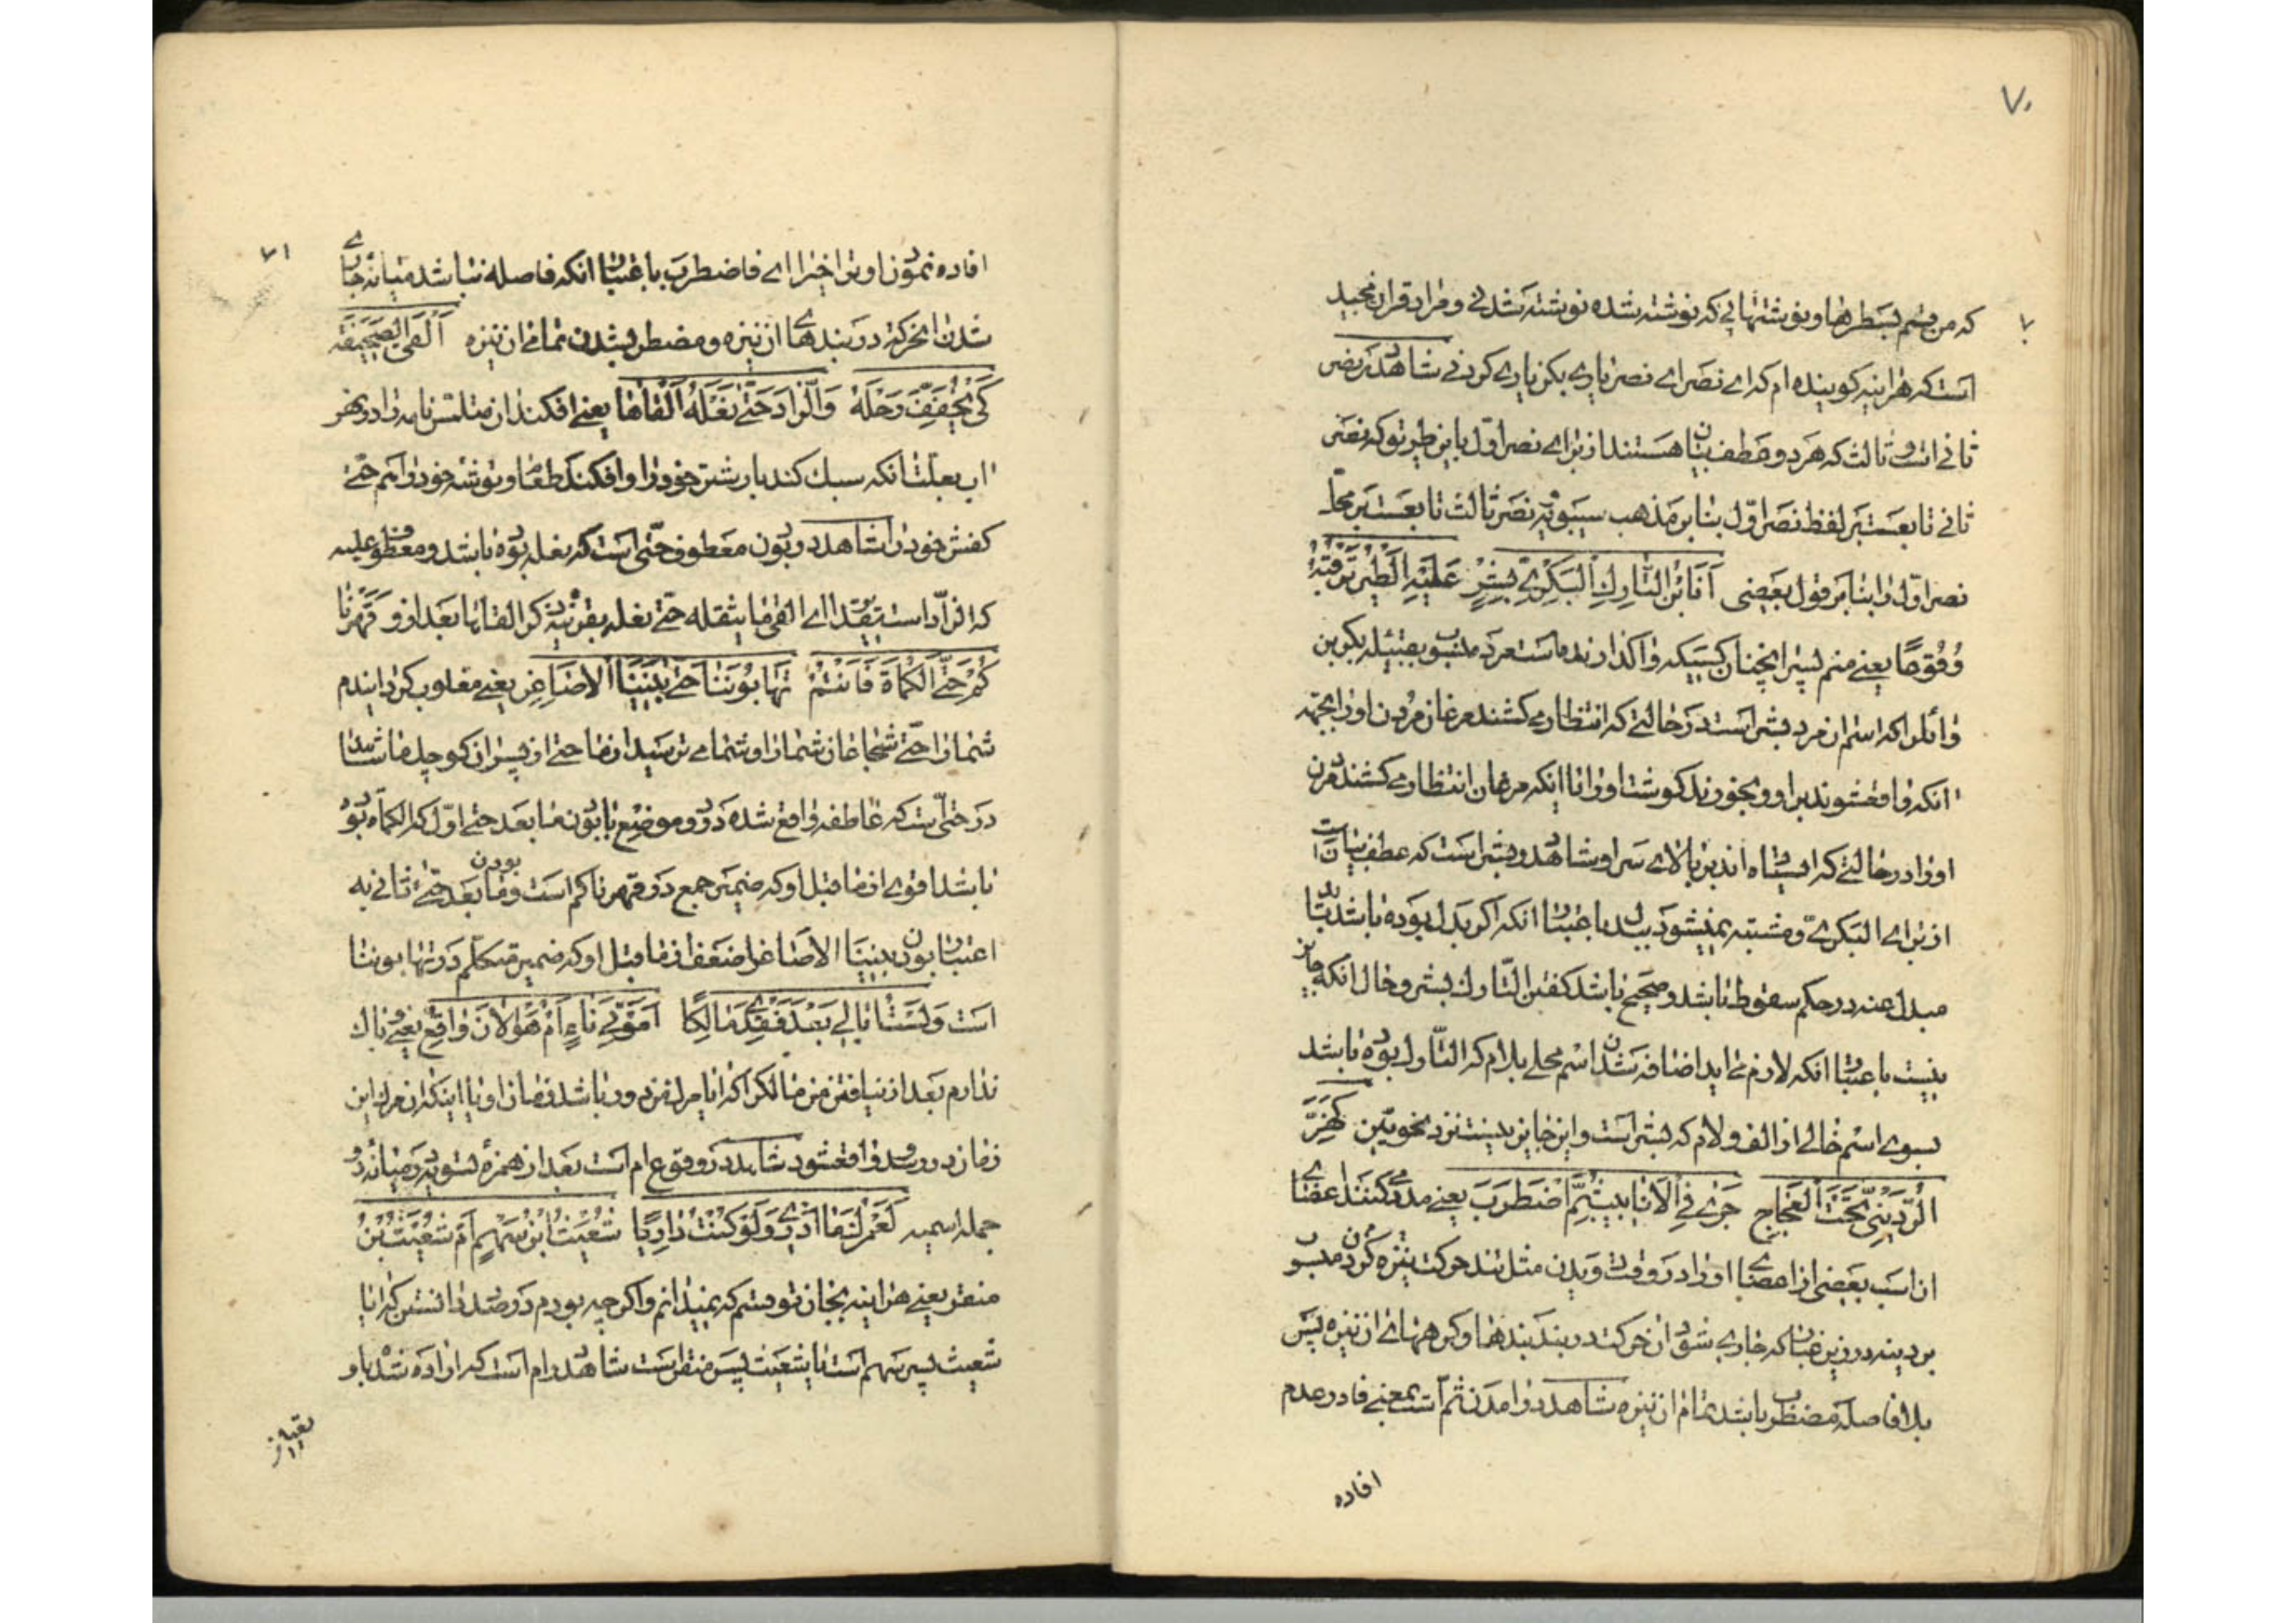 ۷۰
که من قسم بسطرها و نوشتهائی که نوشته شده نوشته شدنی و مراد قران مجید
است که هراینه کوینده ام که ای نصر ای نصر یاری بکن یاری کردنی شاهد در نصر
ثانی است و ثالث که هر دو عطف بیان هستند از برای نصر اول باین طریق که نصر
ثانی تابعست بر لفظ نصر اوّل بنا بر مذهب سیبویه و نصر ثالث تابعست بر محلّ
نصر اوّل و یا بنا بر قول بعضی اَنَا بْنُ التّارِكِ الْبَكْرِيِّ بِشْرٍ عَلَيْهِ الطَّيْرُ تَرْقُبُهُ
وُقُوعًا یعنی منم پسر انچنان کسیکه واکذارنده است مرد منسوب بقبیله بکر بن
وائل را که اسم ان مرد بشر است در حالتی که انتظار می کشند مرغان مردن او را بجهة
انکه واقع شوند بر او و بخورند کوشت او را و یا اینکه مرغان انتظار می کشند مردن
او را در حالتی که ایستاده اند بر بالای سر او شاهد در بشر است که عطف بیانست
از برای البکری و مشتبه نمیشود ببدل باعتبار انکه اکر بدل بوده باشد باید
مبدل عنه در حکم سقوط باشد و صحیح باشد کفتن التّارك بشر و حال انکه جایز
نیست باعتبار انکه لازم می اید اضافه شدن اسم محلی بلام که التّارك بوده باشد
بسوی اسم خالی از الف و لام که بشر است و این جایز نیست نزد نحویین كَهَزِّ
الرُّدَيْنِيِّ تَحْتَ الْعَجَاجِ جَرٰى فِي الْاَنَابِيبِ ثُمَّ اضْطَرَبَ یعنی حرکت میکنند اعضای
ان اسب بعضی از اعضای او در وقت دویدن مثل تند حرکت کردن نیزه منسوب
بردینه در زیر غبار که جاری شود ان حرکت در بند بندها و کره های ان نیزه پس
بلا فاصله مضطرب باشد تمام ان نیزه شاهد در امدن ثمّ است بمعنی فا در عدم
افاده
۷۱
افاده نمودن او تراخی را ای فاضطرب باعتبار انکه فاصله نمیباشد میانه جاری
شدن انحرکة در بندهای ان نیزه و مضطرب شدن تمامی ان نیزه اَلْقَى الصَّحِيفَةَ
كَيْ يُخَفِّفَ رَحْلَهُ وَالزّادَ حَتّٰى نَعْلَهُ اَلْقَاهَا یعنی افکند ان متلمّس نامه را در نهر
اب بعلت انکه سبك کند بار شتر خود را و افکند طعام و توشه خود را هم حتّی
کفش خود را شاهد در بودن معطوف حتّی است که نعله بوده باشد و معطوف علیه
که الزّاد است بتقدیر ای القی ما یثقله حتّی نعله بقرینه ذکر القاها بعد از او قَهَرْنَا
كُمُ حَتَّى الْكُمَاةَ فَاَنْتُمُ تَهَابُونَنَا حَتّٰى بَنِينَا الْاَصَاغِرَ یعنی مغلوب کردانیدم
شما را حتّی شجاعان شما را و شما می ترسید از ما حتّی از پسران کوچك ما شاهد
در حتّی است که عاطفه واقع شده در دو موضع با بودن ما بعد حتّی اوّل که الکماة بوده
باشد اقوی از ما قبل او که ضمیر جمع در قهرناکم است و بودن ما بعد حتّی ثانی به
اعتبار بودن بنینا الاصاغر اضعف از ما قبل او که ضمیر متکلّم در تهابوننا
است وَلَسْتُ اُبَالِي بَعْدَ فَقْدِي مَالِكًا اَمَوْتِيَ نَاءٍ اَمْ هُوَ الْاٰنَ وَاقِعٌ یعنی و باك
ندارم بعد از نیافتن من مالك را که ایا مرك من دور باشد زمان او یا اینکه ان مرك این
زمان در رسد و واقع شود شاهد در وقوع ام است بعد از همزه تسویه در میانه دو
جمله اسمیه لَعَمْرُكَ مَا اَدْرِي وَلَوْ كُنْتُ دَارِيًا شُعَيْثُ ابْنُ سَهْمٍ اَمْ شُعَيْثُ بْنُ
منقر یعنی هراینه بجان تو قسم که نمیدانم و اکرچه بودم در صدد دانستن که ایا
شعیث پسر سهم است یا شعیث پسر منقر است شاهد در ام است که اراده شده باو